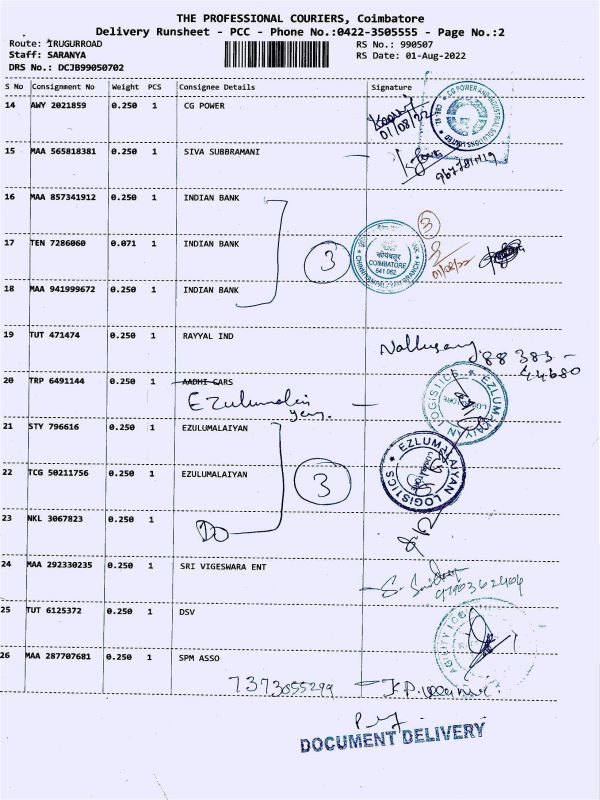 THE PROFESSIONAL COURIERS, Coimbatore
Delivery Runsheet - PCC - Phone No.:0422-3505555 - Page No.:2
Route: IRUGURROAD
RS No.: 990507
Staff: SARANYA
RS Date: 01-Aug-2022
DRS No.: DCJB99050702
S No Consignment No Weight PCS Consignee Details Signature
14 AWY 2021859 0.250 1 CG POWER
01/08/22
CG POWER AND INDUSTRIAL SOLUTIONS LIMITED
15 MAA 565818381 0.250 1 SIVA SUBBRAMANI
16 MAA 857341912 0.250 1 INDIAN BANK
17 TEN 7286060 0.071 1 INDIAN BANK
3
कोयंबत्तूर
COIMBATORE
641 062
3
01/08/22
18 MAA 941999672 0.250 1 INDIAN BANK
19 TUT 471474 0.250 1 RAYYAL IND
88383-
44680
20 TRP 6491144 0.250 1 AADHI CARS
Ezulumalai
yan.
EZLUMALAIYAN LOGISTICS
21 STY 796616 0.250 1 EZULUMALAIYAN
22 TCG 50211756 0.250 1 EZULUMALAIYAN
3
EZLUMALAIYAN LOGISTICS
23 NKL 3067823 0.250 1
DO
24 MAA 292330235 0.250 1 SRI VIGESWARA ENT
25 TUT 6125372 0.250 1 DSV
AGILITY
26 MAA 287707681 0.250 1 SPM ASSO
7373055299
DOCUMENT DELIVERY